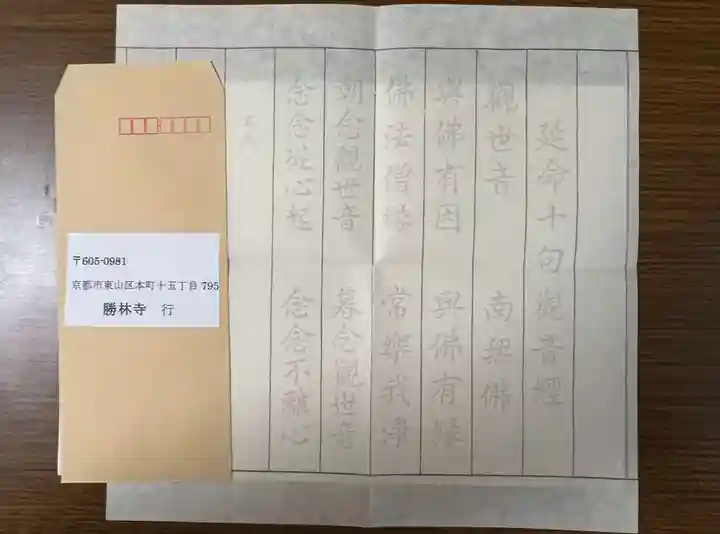 延命十句觀音經
觀世音 南無佛
與佛有因 與佛有緣
佛法僧緣 常樂我淨
朝念觀世音 暮念觀世音
念念從心起 念念不離心
〒605-0981
京都市東山区本町十五丁目795
勝林寺 行